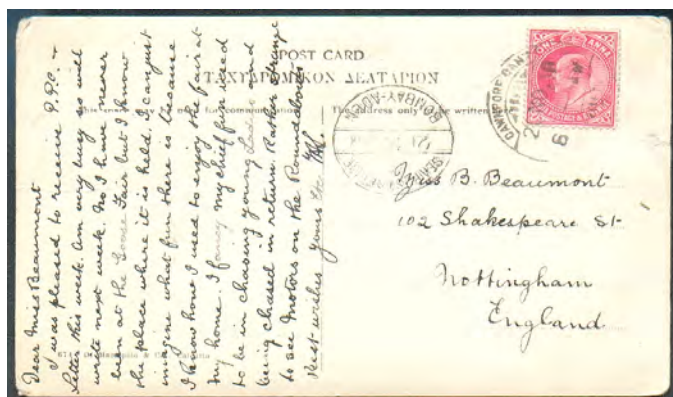 POST CARD
ΤΑΧΥΔΡΟΜΙΚΟΝ ΔΕΛΤΑΡΙΟΝ
This space may be used for communication
The address only to be written
Dear Miss Beaumont
I was pleased to receive P.P.C. &
Letter this week. Am very busy so will
write next week. No I have never
been at the Goose Fair but I know
the place where it is held. I can just
imagine what fun there is because
I know how I used to enjoy the fair at
my home. I fancy my chief fun used
to be in chasing young Ladies and
being chased in return. Rather strange
to see Motors on the Roundabouts
Best wishes yours
Miss B. Beaumont
102 Shakespeare St
Nottingham
England
ONE ANNA
POSTAGE &
CAWNPORE
BOMBAY-ADEN
SEA